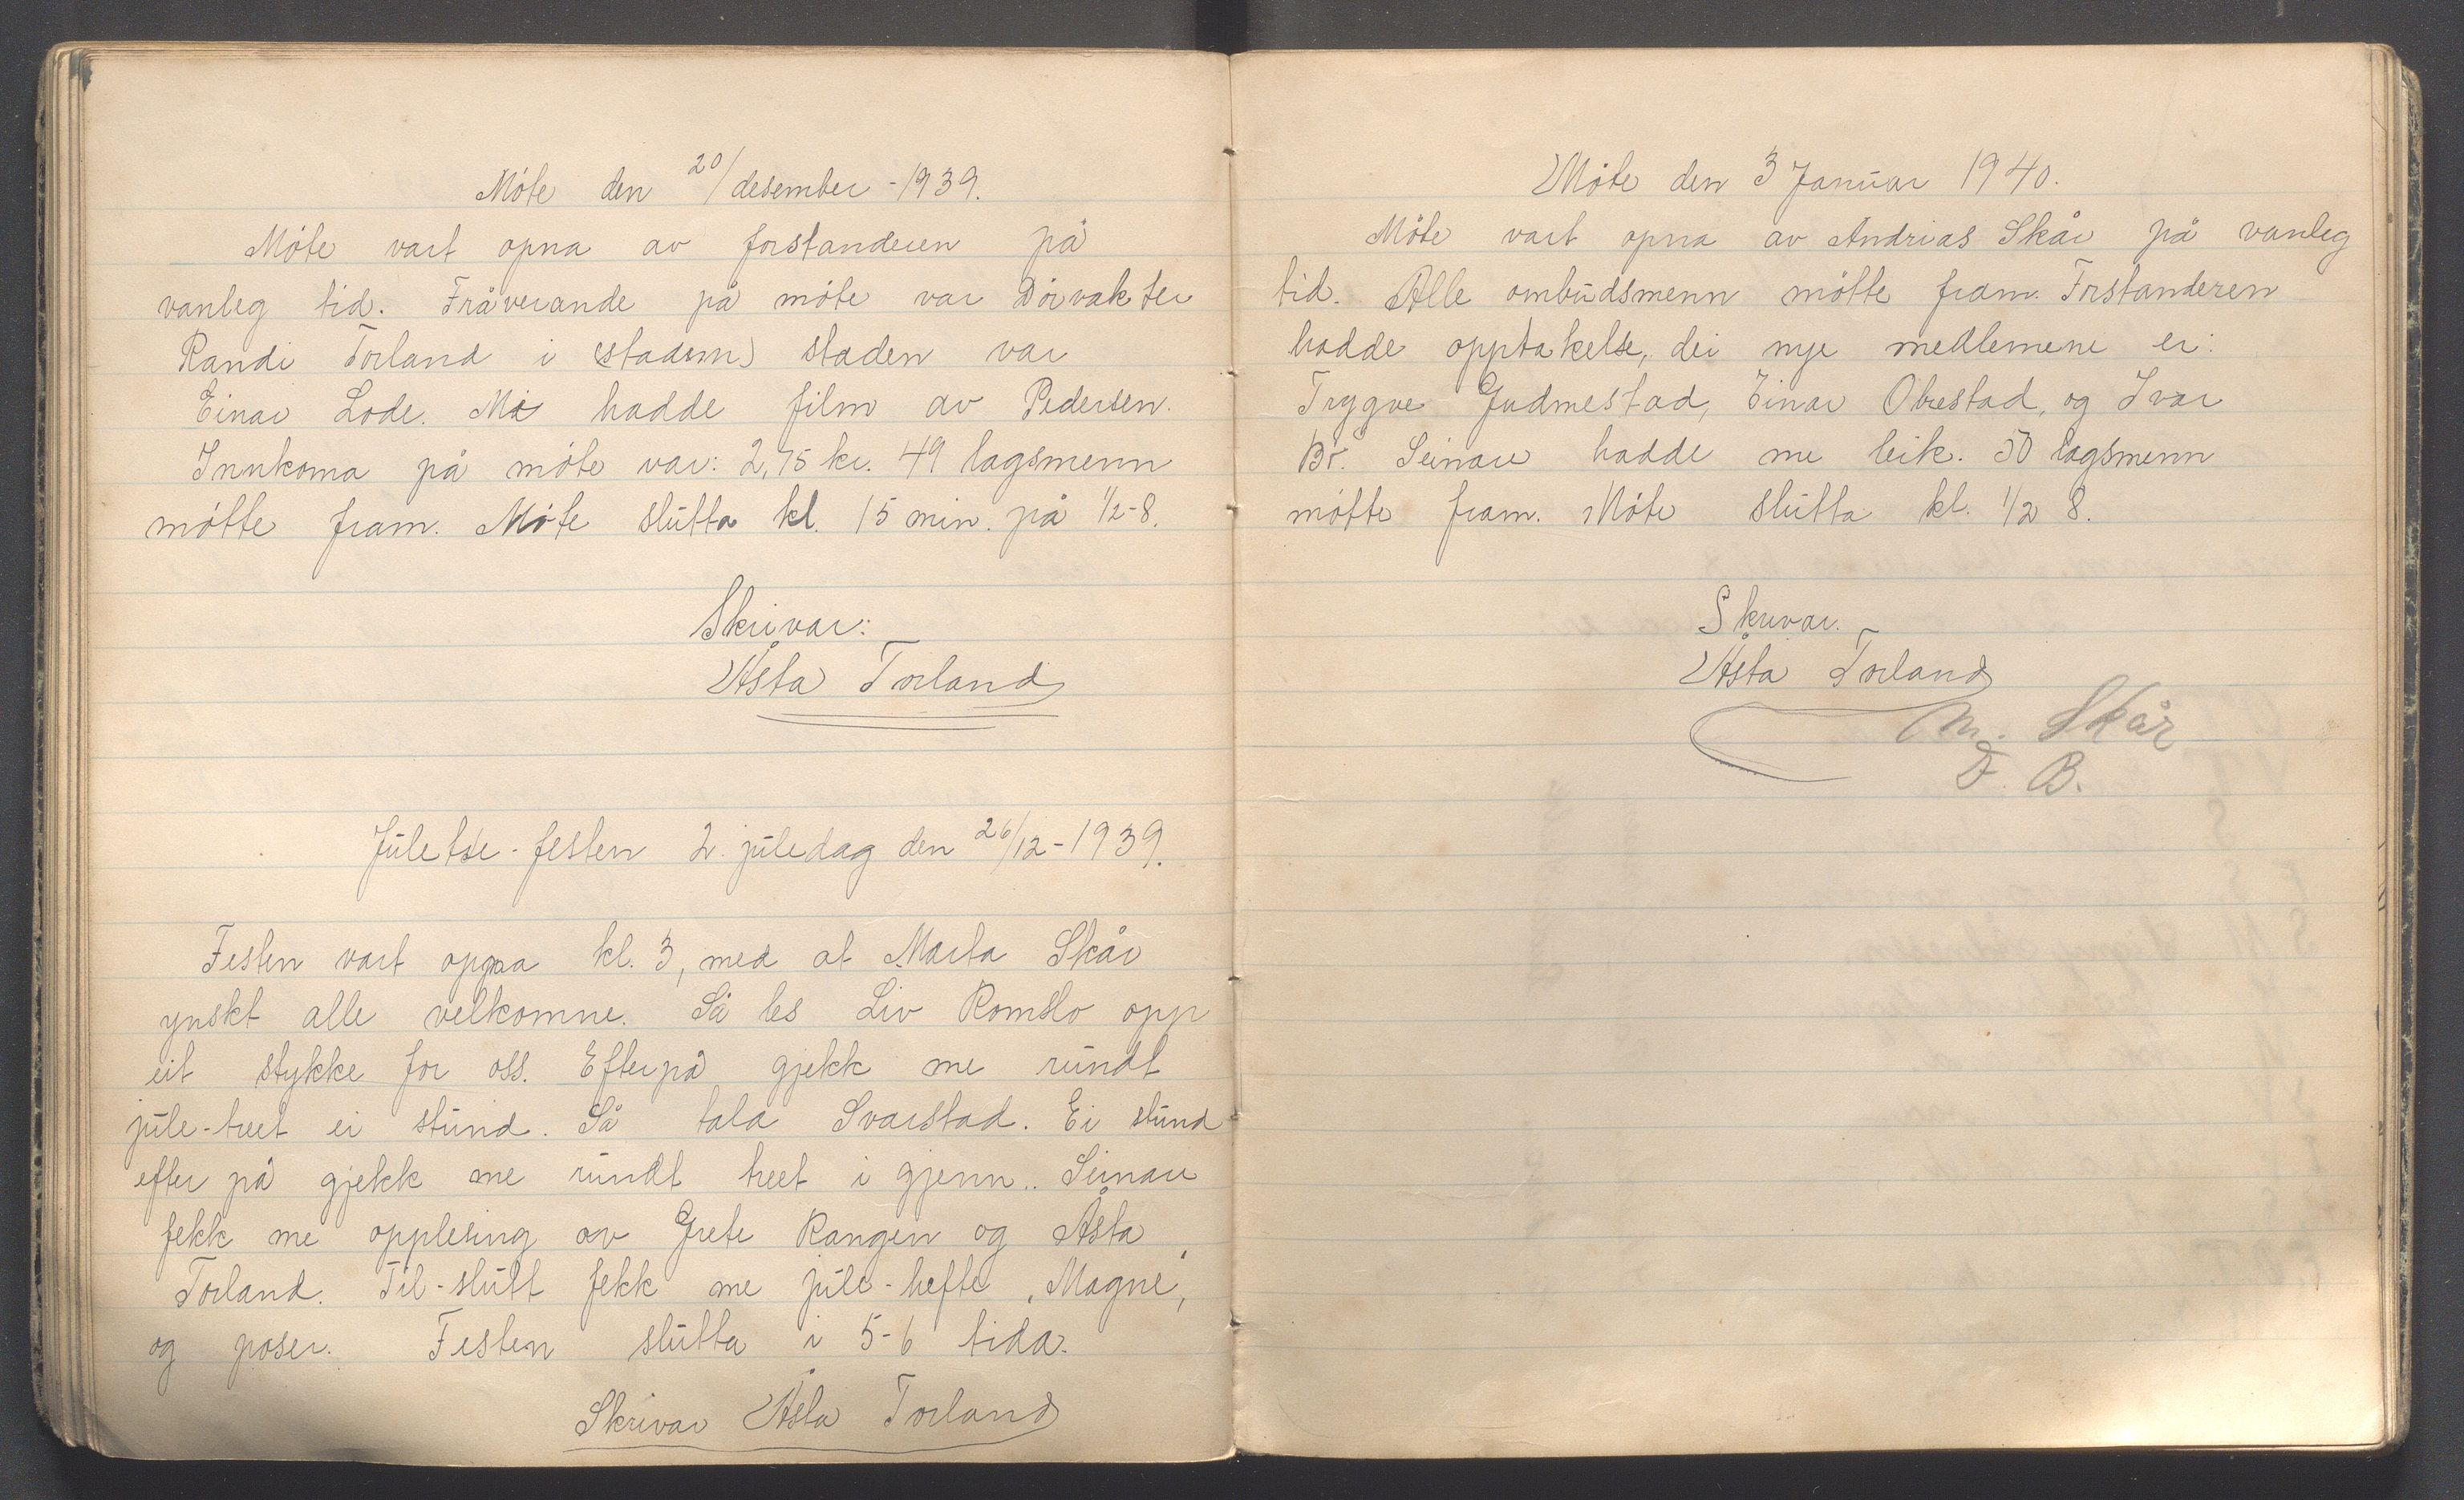 Möte den 20/desember -1939.
Möte vart opna av forstanderen på
vanleg tid. Fråverande på möte var Dörvakter
Randi Torland i (stadem) staden var
Einar Lode. Me hadde film av Pedersen.
Innkoma på möte var: 2,75 kr. 49 lagsmenn
mötte fram. Möte slutta kl. 15 min. på 1/2-8.
Skrivar:
Åsta Torland
Juletre-festen 2. juledag den 26/12-1939.
Festen vart oppna kl. 3, med at Marta Skår
ynskt alle velkomne. Så les Liv Romslo opp
eit stykke for oss. Efterpå gjekk me rundt
jule-treet ei stund. Så tala Svarstad. Ei stund
efter på gjekk me rundt treet i gjenn.. Seinare
fekk me opplesing av Grete Rangen og Åsta
Torland. Til-slutt fekk me jule-hefte "Magne",
og poser. Festen slutta i 5-6 tida.
Skrivar Åsta Torland
Möte den 3 Januar 1940.
Möte vart opna av Andrias Skår på vanleg
tid. Alle ombudsmenn mötte fram. Forstanderen
hadde opptakelse, dei nye medlemene er:
Trygve Gudmestad, Einar Obrestad, og Ivar
Br. Seinare hadde me leik. 50 lagsmenn
mötte fram. Möte slutta kl. 1/2 8.
Skrivar.
Åsta Torland
M. Skår
F. B.